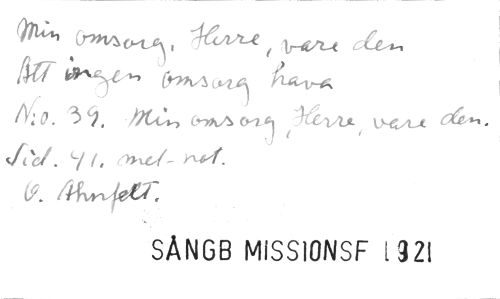 Min omsorg, Herre, vare den
Att ingen omsorg hava
N:o. 39. Min omsorg, Herre, vare den.
Sid. 41. met-not.
O. Ahnfelt.
SÅNGB MISSIONSF 1921